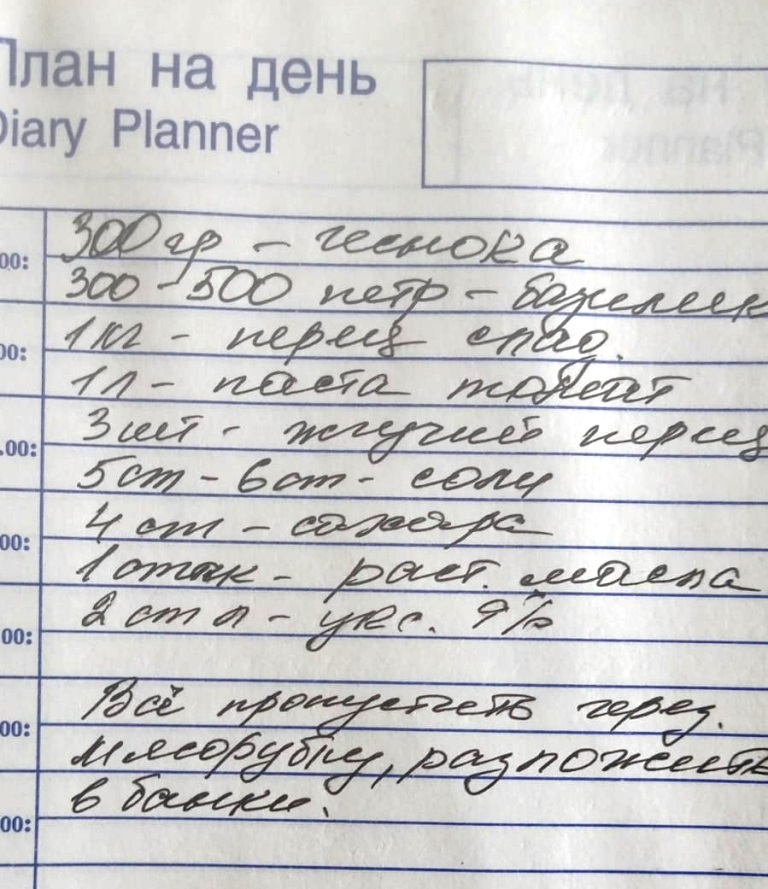 План на день
Diary Planner
00: 300 гр - чеснока
300 - 500 петр - базилик
00: 1 кг - перец слад.
1 л - паста томат
.00: 3 шт - жгучий перец
5 ст - 6 ст - соли
00: 4 ст - сахара
1 стак - раст. масла
00: 2 ст л - укс. 9%
Всё пропустить через.
00: мясорубку, разложить
в банки.
00: